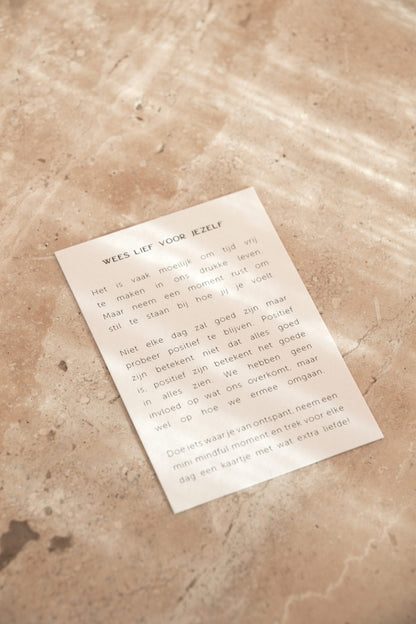 WEES LIEF VOOR JEZELF
Het is vaak moeilijk om tijd vrij
te maken in ons drukke leven.
Maar neem een moment rust om
stil te staan bij hoe jij je voelt.
Niet elke dag zal goed zijn maar
probeer positief te blijven. Positief
zijn betekent niet dat alles goed
is, positief zijn betekent het goede
in alles zien. We hebben geen
invloed op wat ons overkomt, maar
wel op hoe we ermee omgaan.
Doe iets waar je van ontspant, neem een
mini mindful moment en trek voor elke
dag een kaartje met wat extra liefde!